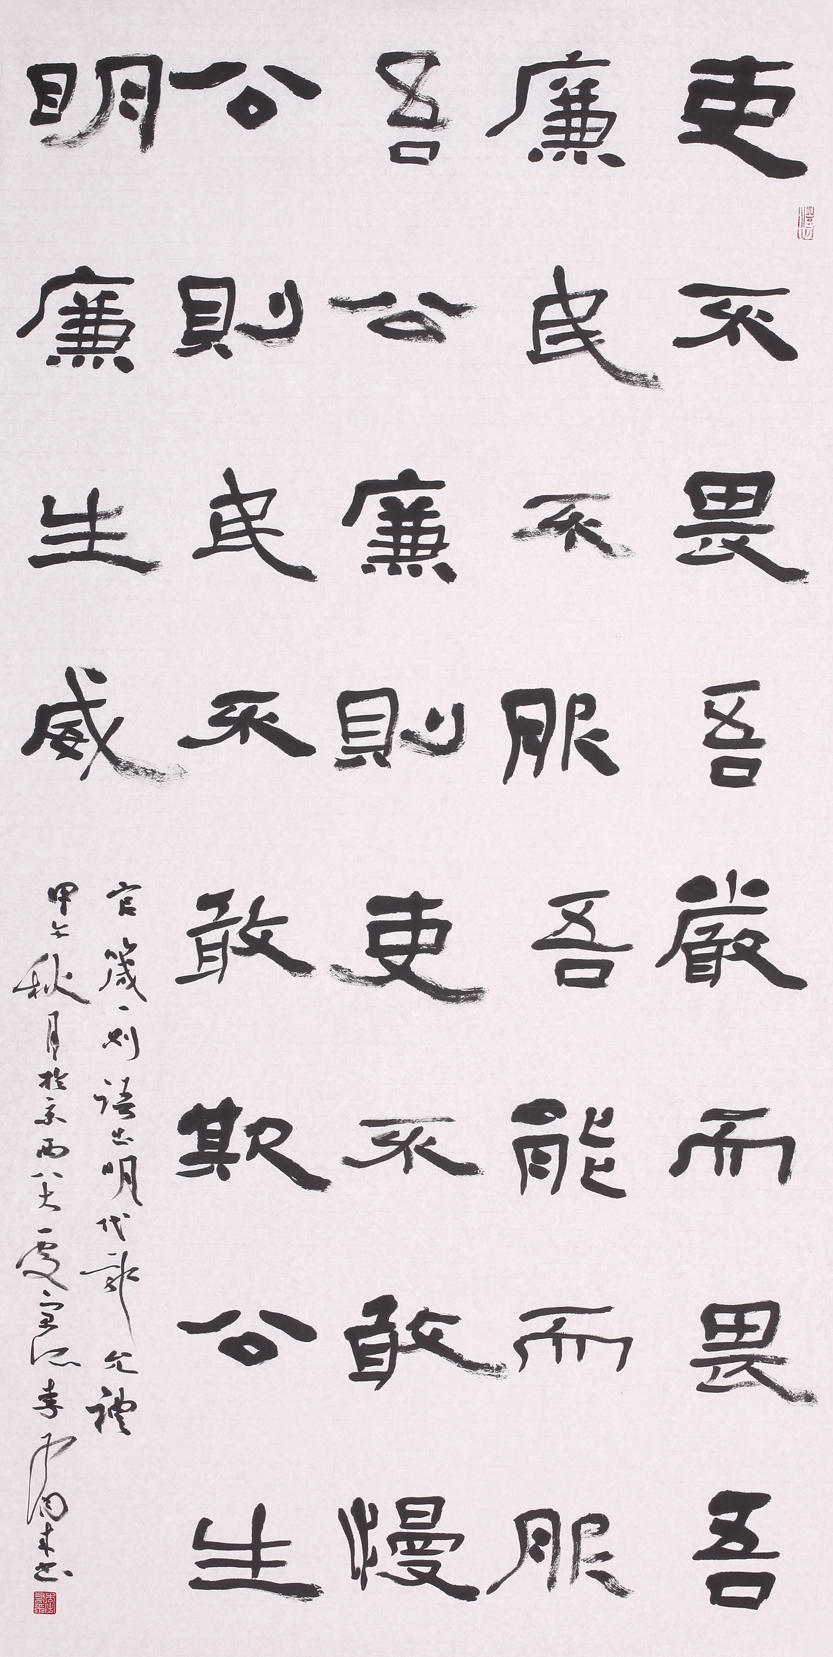 吏不畏吾嚴而畏吾
廉民不服吾能而服
吾公廉則吏不敢慢
公則民不敢欺公生
明廉生威
官箴一则語出明代郭允禮
甲午秋月於京西八大處李